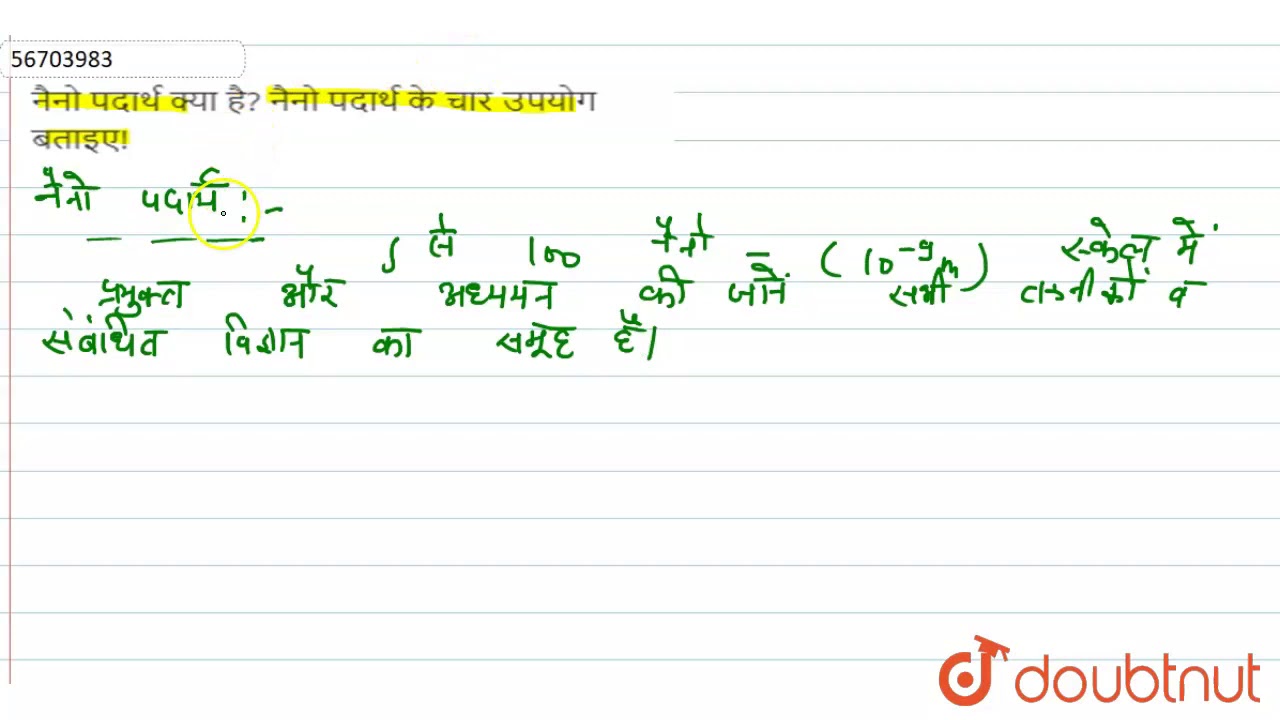 56703983
नैनो पदार्थ क्या है? नैनो पदार्थ के चार उपयोग
बताइए!
नैनो पदार्थ :-
1 से 100 नैनो - (10⁻⁹m) स्केल में
प्रयुक्त और अध्ययन की जाने सभी तकनीकों व
संबंधित विज्ञान का समूह है।
doubtnut